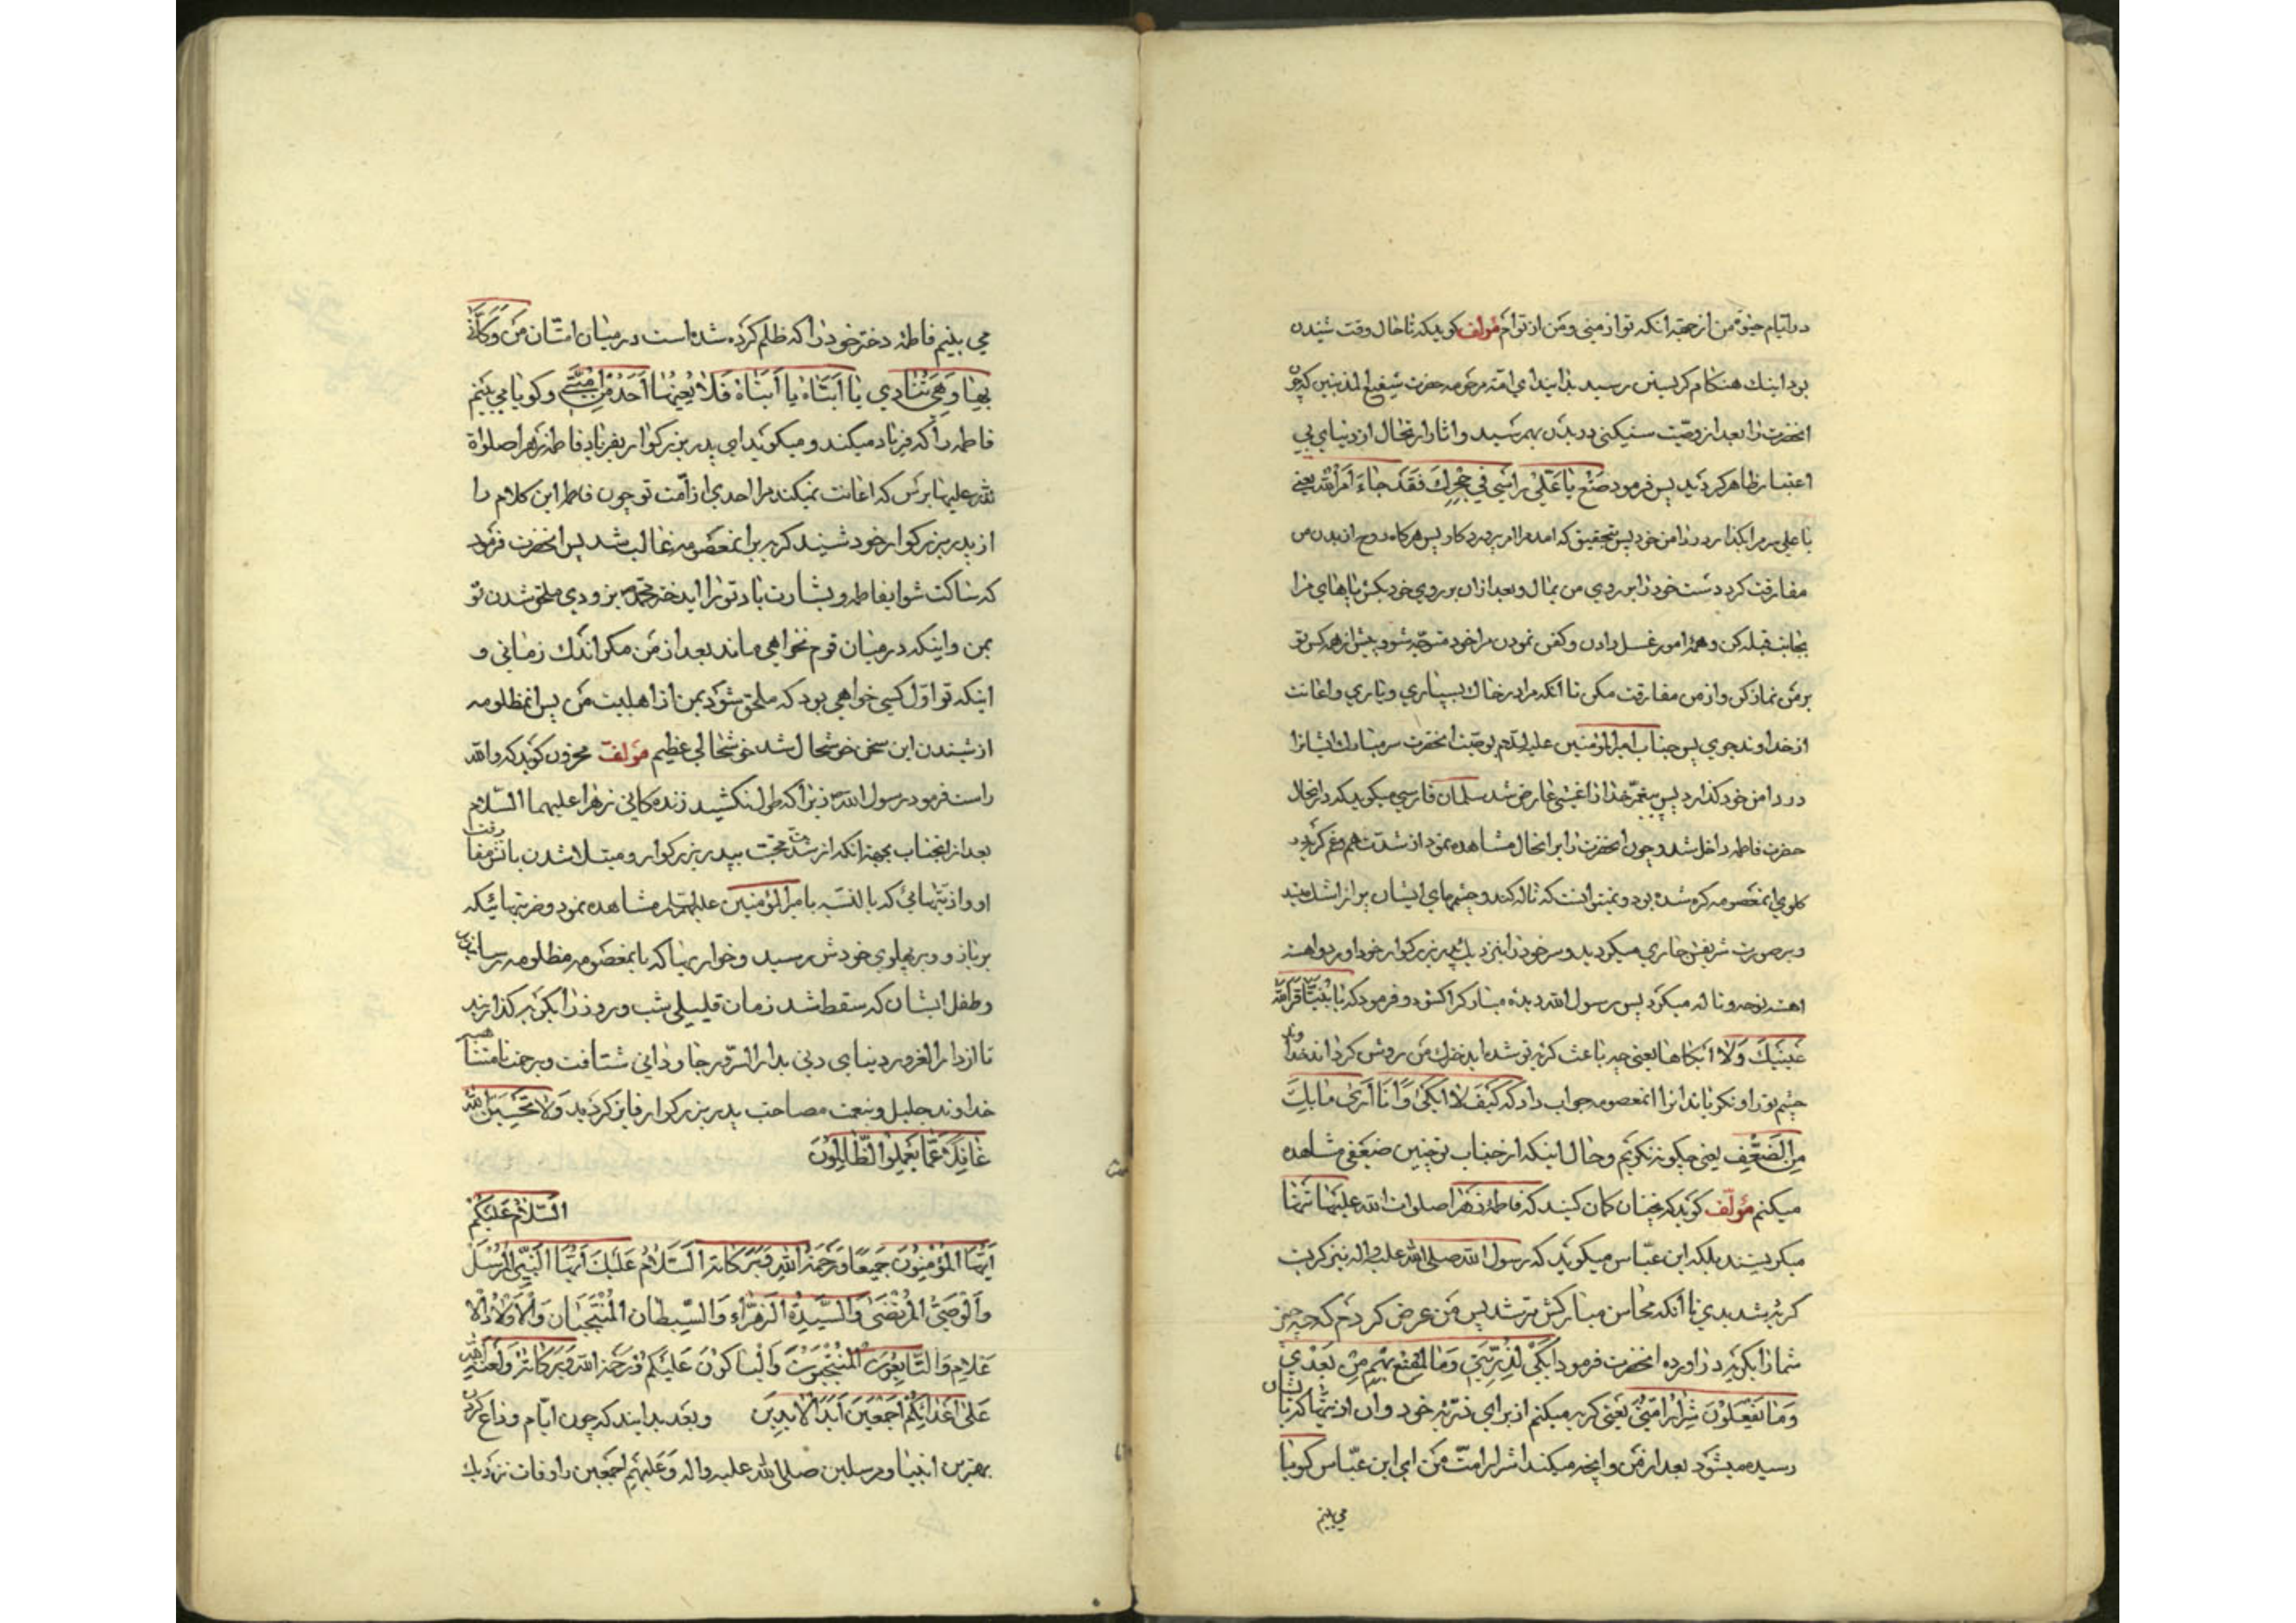 در ایام حیوة من از جهة آنکه تو از منی و من از توام مؤلف کوید که تا حال وقت شنیدن
بود اینك هنکام کریستن رسید بدانید ای امة مرحومه حضرت شفیع المذنبین که چون
انحضرت را بعد از وصیت سنیکنی در بدن بهمرسید و اثار ارتحال از دنیای بی
اعتبار ظاهر کردید پس فرمود ضَعْ یَا عَلیُّ رَأسی فی حِجْرِكَ فَقَدْ جَاءَ اَمْرُ اللّه یعنی
یا علی سر مرا بکذار در دامن خود پس بتحقیق که امد مرا امر پروردکار پس هرکاه روح از بدن من
مفارقت کرد دست خود را بر روی من بمال و بعد از ان بر روی خود بکش پاهای مرا
بجانب قبله کن و همه امور غسل دادن و کفن نمودن مرا خود متوجه شو و پیش از همه کس تو
بر من نماز کن و از من مفارقت مکن تا انکه مرا در خاك بسپاری و یاری و اعانت
از خداوند بجوی پس جناب امیرالمؤمنین علیه السلام بوصیت انحضرت سر مبارك ایشانرا
در دامن خود کذارد پس پیغمبر خدا را غشی عارض شد سلمان فارسی میکوید که در انحال
حضرت فاطمه داخل شد و چون انحضرت را بر انحال مشاهده نمود از شدت هم و غم کریه در
کلوی انمعصومه کره شده بود و نمیتوانست که ناله کند و چشمهای ایشان پر از اشك میشد
و بر صورت شریفش جاری میکردید و سر خود را بنزدیك پدر بزرکوار خود اورد و اهسته
اهسته نوحه و ناله میکرد پس رسول الله دیده مبارکرا کشود و فرمود که یَا بُنَیَّةِ اَقَرَّ اللّه
عَیْنَیْكَ وَلا اَبْکَاهَا یعنی چه باعث کریه تو شد ایدخترك من روشن کرداند خداوند
چشم تو را و نکریاند انرا انمعصومه جواب داد که کَیْفَ لا اَبْکی وَ اَنَا اَری مَا بِكَ
مِنَ الضَّعْفِ یعنی چکونه نکریم و حال اینکه از جناب تو چنین ضعفی مشاهده
میکنم مؤلف کوید که نچنان کمان کنید که فاطمهٔ زهرا صلوات الله علیها تنها
میکریستند بلکه ابن عباس میکوید که رسول الله صلی الله علیه و اله نیز کریست
کریهٔ شدیدی تا انکه محاسن مبارکش تر شد پس من عرض کردم که چه چیز
شما را بکریه در اورده انحضرت فرمود اَبْکی لِذُرِّیَتی وَمَا یَقَعُ بِهِمْ مِنْ بَعْدی
وَمَا یَفْعَلُونَ شِرَارُ اُمَّتی یعنی کریه میکنم از برای ذریهٔ خود و ان ازیتها که بایشان
رسیده میشود بعد از من و انچه میکند اشرار امت من ای ابن عباس کویا
می بینم
می بینم فاطمه دختر خود را که ظلم کرده شده است در میان امتان من وَ کَأَنّی
بِهَا وَ هِیَ تُنَادی یَا اَبَتَاهُ یَا اَبَتَاهُ فَلا یُعینُهَا اَحَدٌ مِنْ اُمَّتی و کویا می بینم
فاطمه را که فریاد میکند و میکوید ای پدر بزرکوار بفریاد فاطمه زهرا صلوات
الله علیها برس که اعانت نمیکند مرا احدی از امت تو چون فاطمه این کلام را
از پدر بزرکوار خود شنید کریه بر انمعصومه غالب شد پس انحضرت فرمود
که ساکت شو ایفاطمه و بشارت باد تو را ایدختر محمد بزودی ملحق شدن تو
بمن و اینکه در میان قوم نخواهی ماند بعد از من مکر اندك زمانی و
اینکه تو اول کسی خواهی بود که ملحق شود بمن از اهلبیت من پس انمظلومه
از شنیدن این سخن خوشحال شد خوشحالی عظیم مؤلف محزون کوید که والله
راست فرمود رسول الله زیرا که طول نکشید زنده کانی زهرا علیهما السلام
بعد از انجناب بجهة انکه از شدت محبت بپدر بزرکوار و مبتلا شدن باتش مفارقت
او و از یتهائی که بالنسبه بامیرالمؤمنین علیه السلام مشاهده نمود و ضربتهائیکه
بر بازو و بر پهلوی خودش رسید و خواریها که بانمعصومه مظلومه رسانیدن
و طفل ایشان که سقط شد زمان قلیلی شب و روز را بکریه کذرانید
تا از دار الغرور دنیای دنی بدار السرور جاودانی شتافت و برحمت نامتناهی
خداوند جلیل و بنعمت مصاحبت پدر بزرکوار فایز کردید وَلا تَحْسَبَنَّ اللّه
غَافِلاً عَمَّا یَعْمَلُ الظَّالِمُونَ
اَلسَّلامُ عَلَیْکُمْ
اَیُّهَا الْمُؤْمِنُونَ جَمیعًا وَ رَحْمَةُ اللّهِ وَ بَرَکَاتُهُ اَلسَّلامُ عَلَیْكَ اَیُّهَا النَّبِیُّ الْمُرْسَلُ
وَ الْوَصِیُّ الْمُرْتَضَی وَ السَّیِّدَةُ الزَّهْرَاءِ وَ السِّبْطَانِ الْمُنْتَجَبَانِ وَ الْاَوْلادُ الْا
عْلامِ وَ التَّابِعُونَ الْمُنْتَجَبُونَ وَ الْبَاکُونَ عَلَیْکُمْ وَ رَحْمَةُ اللّه وَ بَرَکَاتُهُ وَ لَعْنَةُ اللّه
عَلی اَعْدَائِکُمْ اَجْمَعینَ اَبَدَ الْابِدینَ و بعد بدانید که چون ایام وداع کردن
بهترین انبیا و مرسلین صلی الله علیه و اله وَ عَلَیْهِمْ اَجْمَعین را وفات نزدیك